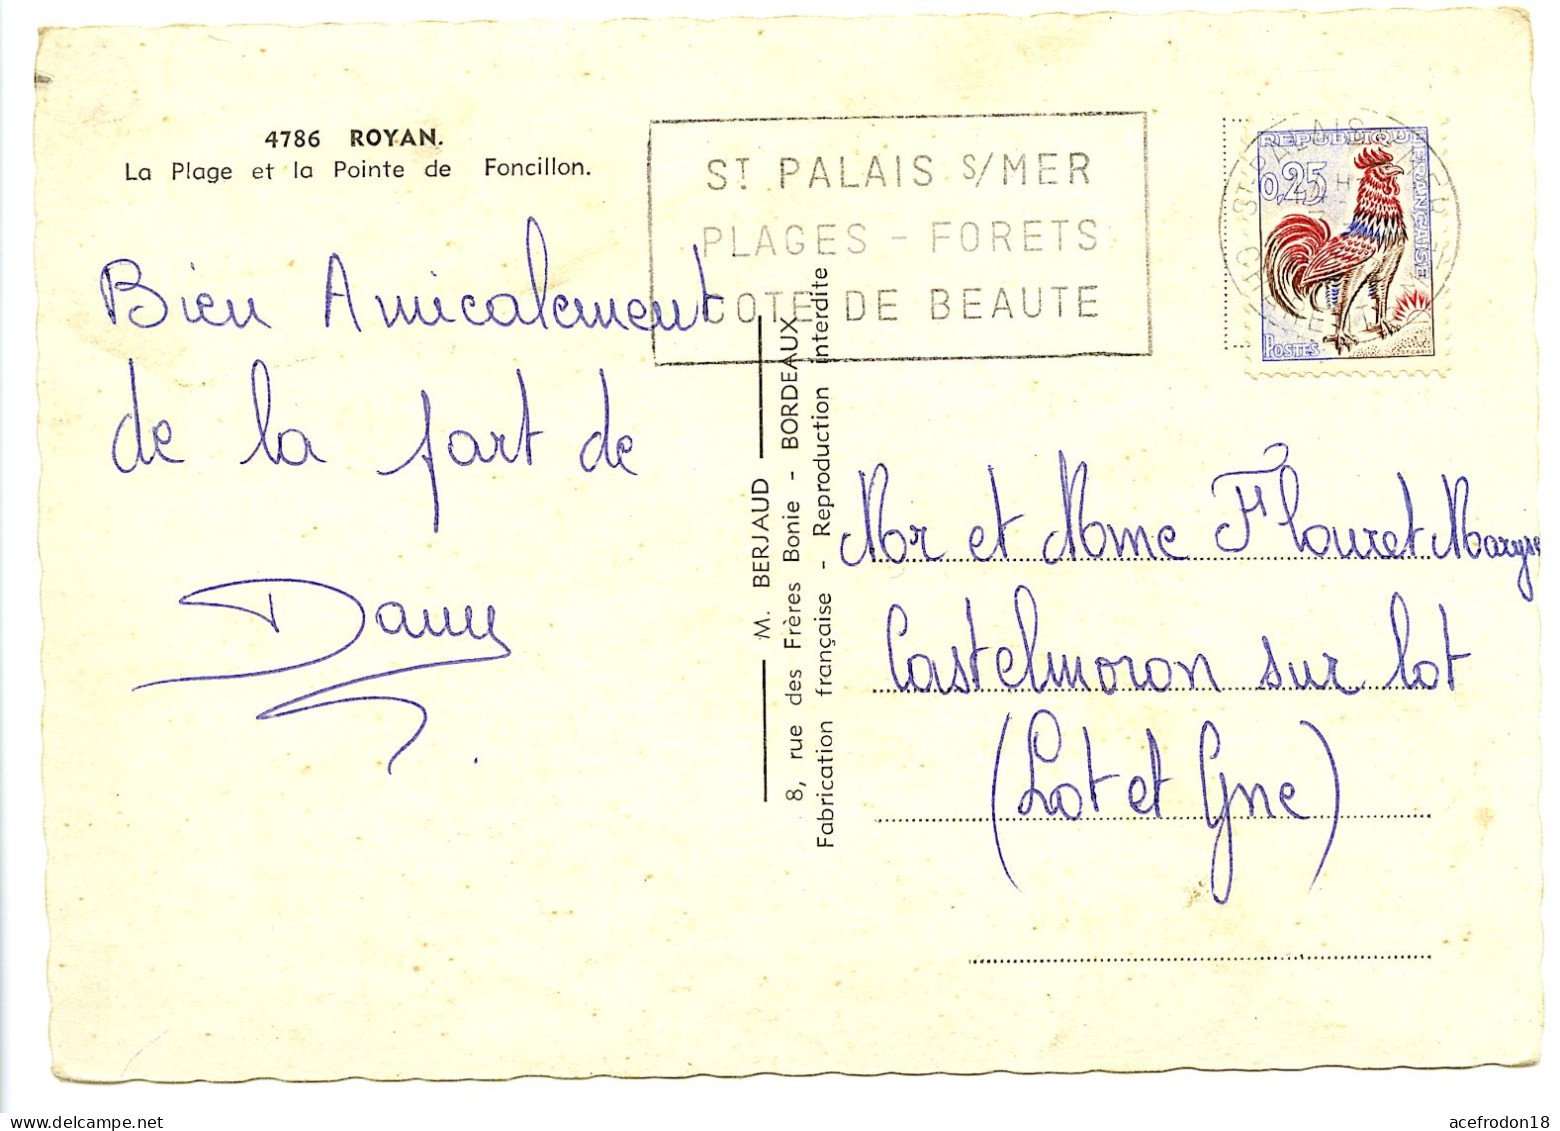 4786 ROYAN.
La Plage et la Pointe de Foncillon.
Bien Amicalement
de la part de
Dany
ST PALAIS S/MER
PLAGES - FORETS
COTE DE BEAUTE
REPUBLIQUE FRANCAISE
0,25
POSTES
M. BERJAUD
8, rue des Frères Bonie - BORDEAUX
Fabrication française - Reproduction interdite
Mr et Mme Flouret Maryse
Castelmoron sur lot
(Lot et Gne)
acefrodon18